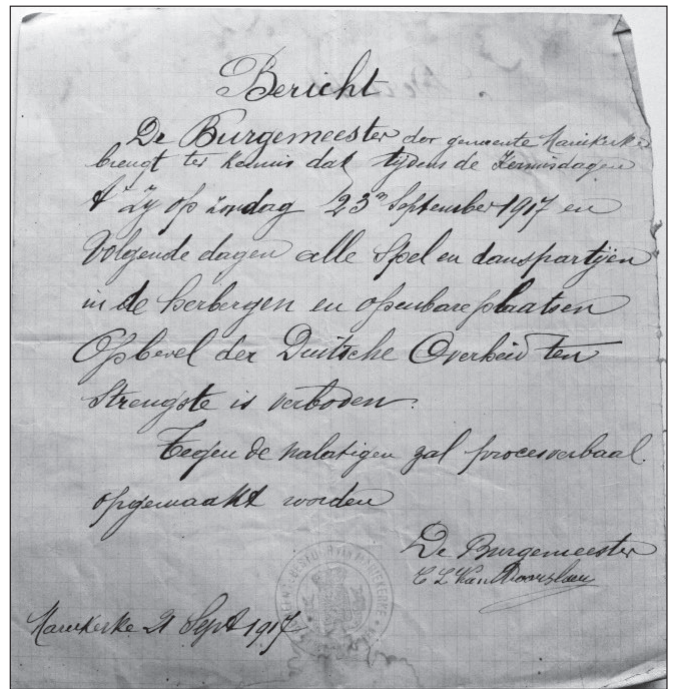 Bericht
De Burgemeester der gemeente Mariekerke
brengt ter kennis dat tijdens de Kermisdagen
t Zij op Zondag 23n September 1917 en
Volgende dagen alle Spel en danspartijen
in de herbergen en openbare plaatsen
Op bevel der Duitsche Overheid ten
Strengste is verboden.
Tegen de nalatigen zal procesverbaal.
opgemaakt worden
De Burgemeester
C L Van
Mariekerke 21 Sept 1917